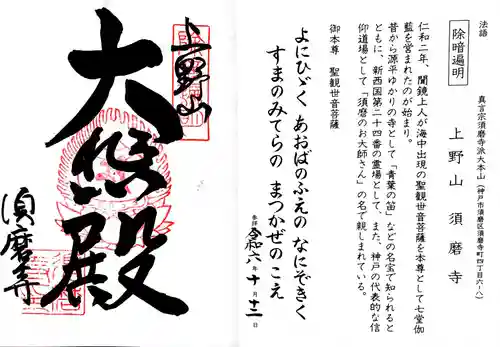 法語
除暗遍明
真言宗須磨寺派大本山(神戸市須磨区須磨寺町四丁目六-八)
上野山 須磨寺
仁和二年、聞鏡上人が海中出現の聖観世音菩薩を本尊として七堂伽
藍を営まれたのが始まり。
昔から源平ゆかりの寺として「青葉の笛」などの名宝で知られると
ともに、新西国第二十四番の霊場として、また、神戸の代表的な信
仰道場として「須磨のお大師さん」の名で親しまれている。
御本尊 聖観世音菩薩
よにひゞく あおばのふえの なにぞきく
すまのみてらの まつかぜのこえ
参拝 令和六年十月十二日
上野山
大悲殿
須磨寺